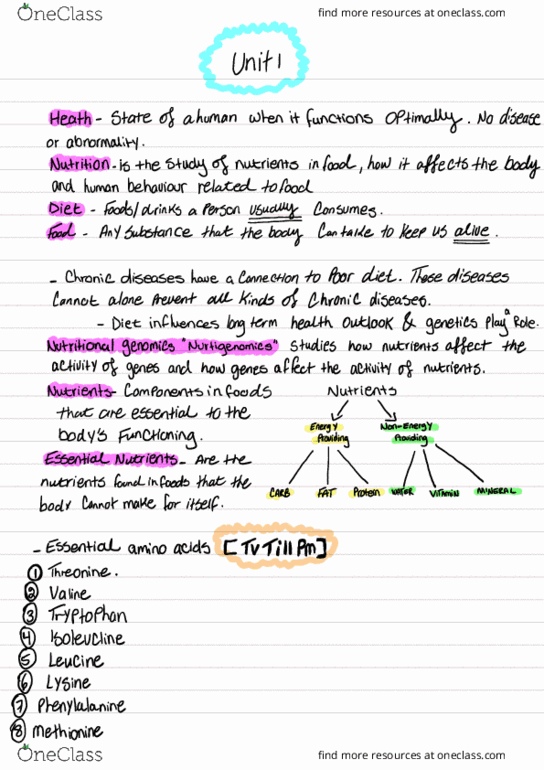 OneClass find more resources at oneclass.com
Unit 1
Heath - State of a human when it functions OPtimally. No disease
or abnormality.
Nutrition - is the study of nutrients in food, how it affects the body
and human behaviour related to food
Diet - Foods/drinks a Person usually Consumes.
Food - Any substance that the body Can take to keep us alive.
- Chronic diseases have a Connection to Poor diet. These diseases
Cannot alone Prevent all Kinds of Chronic diseases.
- Diet influences long term health outlook & genetics Play a Role.
Nutritional genomics "Nurtigenomics" studies how nutrients affect the
activity of genes and how genes affect the activity of nutrients.
Nutrients - Components in foods
that are essential to the
body's Functioning.
Essential Nutrients - Are the
nutrients found in foods that the
body Cannot make for itself.
Nutrients
Energy Providing
Non-Energy Providing
CARB FAT Protein WATER VITAMIN MINERAL
- Essential amino acids [TV Till Pm]
1 Threonine.
2 Valine
3 Tryptophan
4 Isoleucline
5 Leucine
6 Lysine
7 Phenylalanine
8 Methionine
OneClass find more resources at oneclass.com